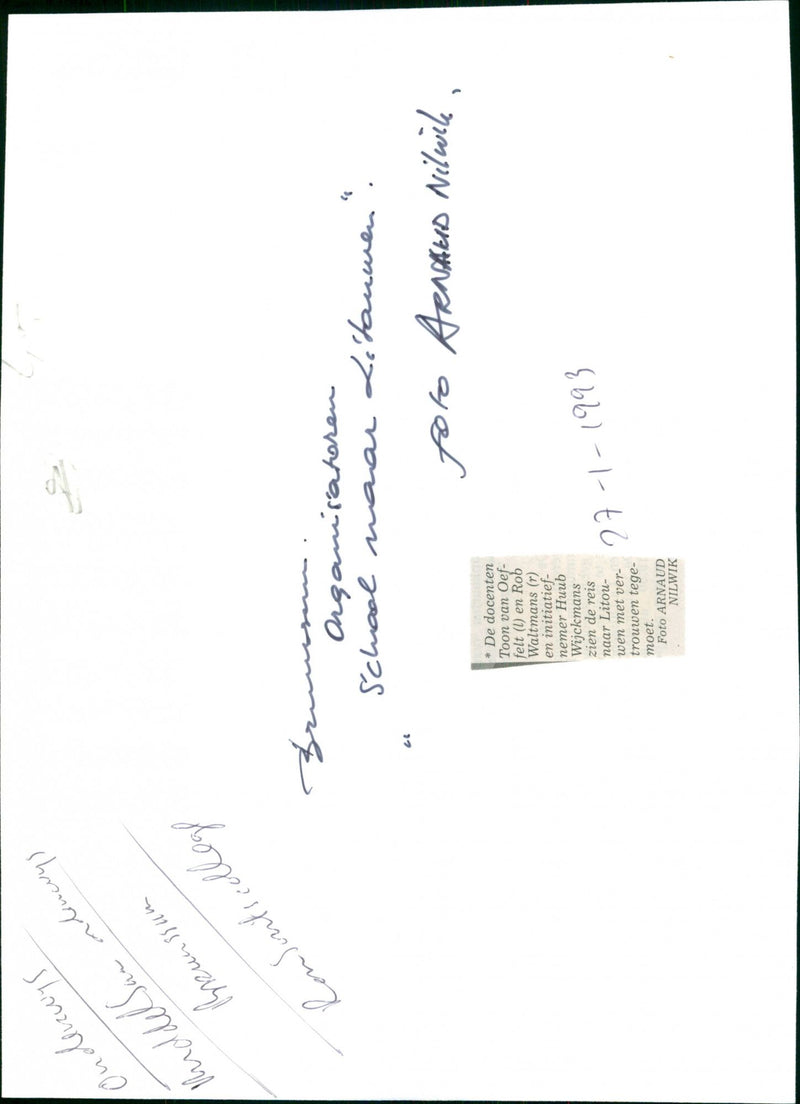 Brunssum.
Organisatoren
"School naar Litauwen".
foto ARNAUD Nilwik,
27-1-1993
* De docenten
Toon van Oef-
felt (l) en Rob
Waltmans (r)
en initiatief-
nemer Huub
Wijckmans
zien de reis
naar Litou-
wen met ver-
trouwen tege-
moet.
Foto ARNAUD
NILWIK
Onderwijs
onderwijs
Brunssum